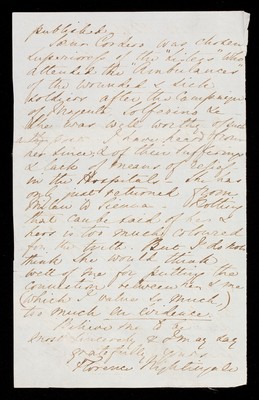 published.
Sœur Cordero was chosen
Superioress of the "religs who
attended the "Ambulances"
of the wounded & sick
soldiers after the Campaign
of Magenta Solferino &c
She was well worthy of such
I have heard from
her since, of their sufferings
& lack of means of relief
in the Hospitals. She has
only just returned from
Milan to Vienna. Nothing
that can be said of her &
hers is too much coloured
for the truth. But I do not
think she would think
well of me for putting the
connection between her & me
(which I value so much,)
too much in evidence.
Believe me to be
most sincerely & I may say
gratefully yours
Florence Nightingale